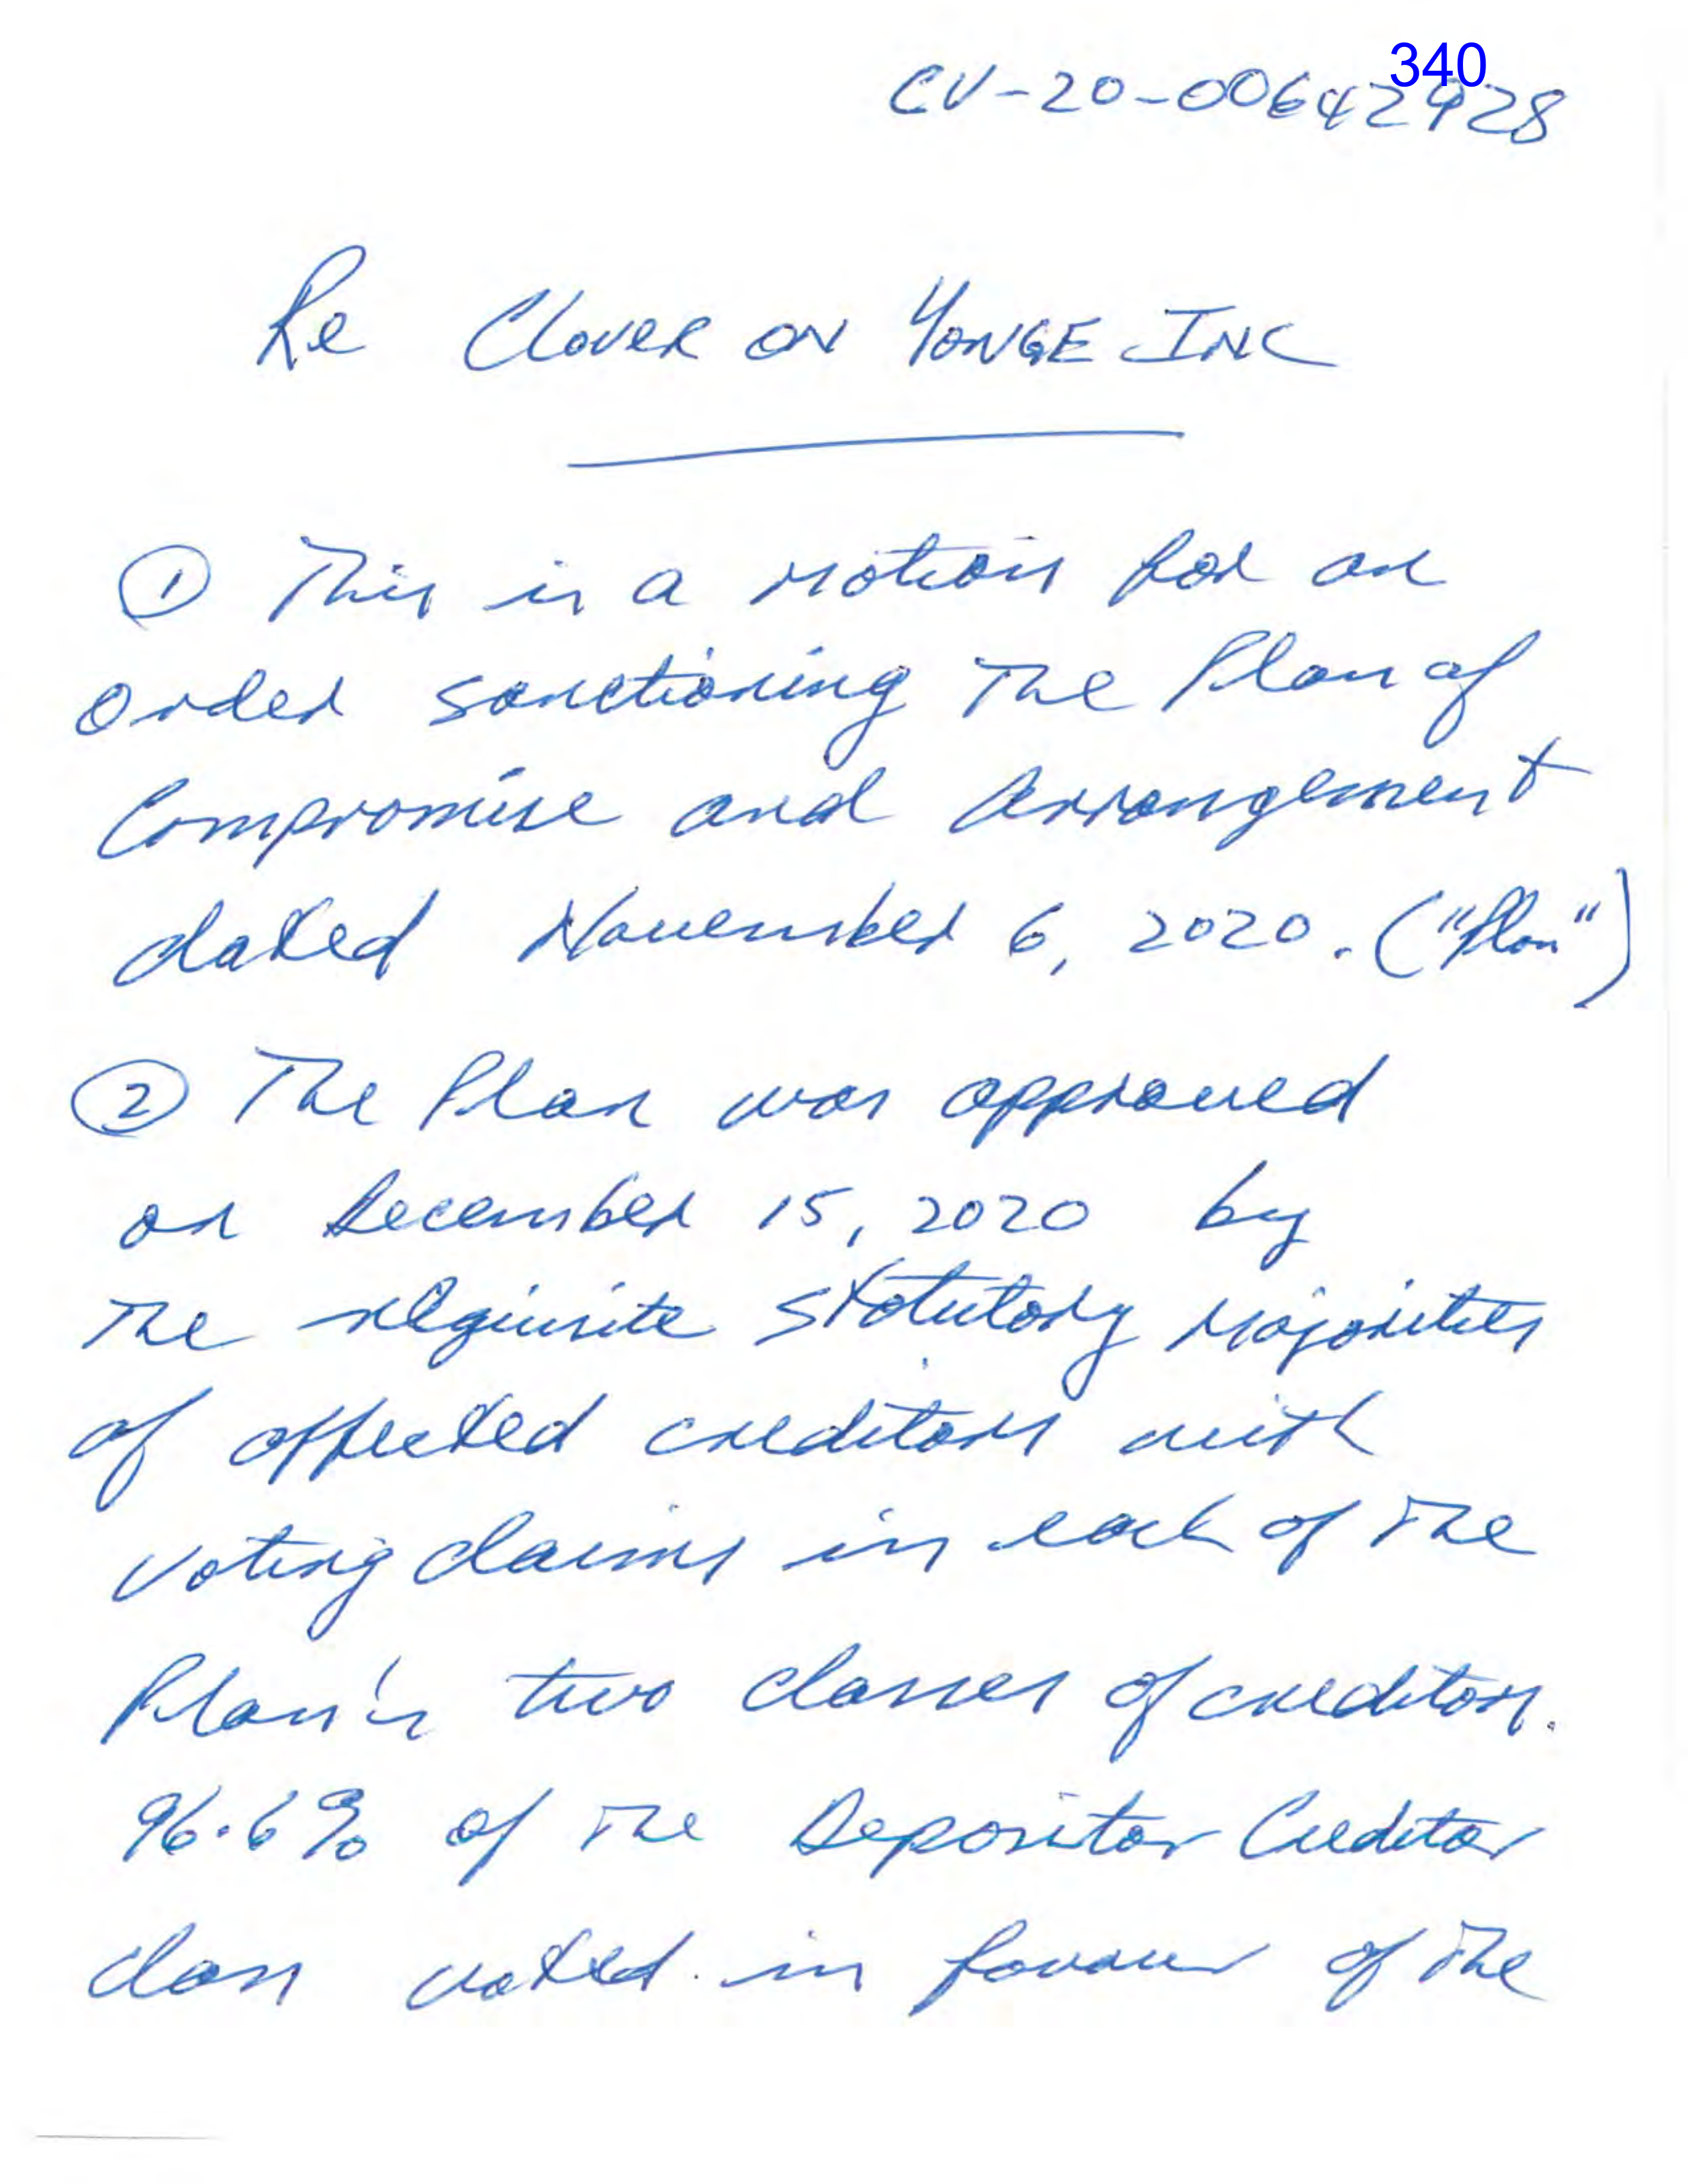 340
CV-20-00642928
Re Clover on Yonge Inc
① This is a motion for an
order sanctioning the Plan of
Compromise and Arrangement
dated November 6, 2020. ("Plan")
② The Plan was approved
on December 15, 2020 by
the requisite statutory majorities
of affected creditors with
voting claims in each of the
Plan's two classes of creditors.
96.6% of the Depositor Creditor
class voted in favour of the